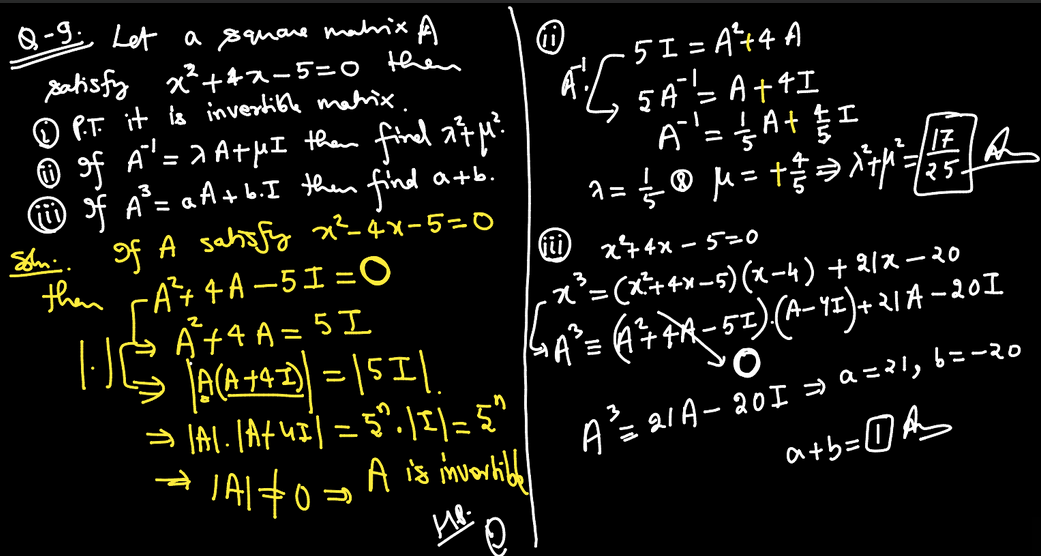 Q-9. Let a square matrix A
satisfy x²+4x-5=0 then
(i) P.T. it is invertible matrix.
(ii) If A⁻¹ = λA+μI then find λ²+μ².
(iii) If A³ = aA + b.I then find a+b.
Soln. If A satisfy x²-4x-5=0
then A²+4A-5I=O
⇒ A²+4A = 5I
|.| ⇒ |A(A+4I)| = |5I|.
⇒ |A|.|A+4I| = 5ⁿ.|I| = 5ⁿ
⇒ |A| ≠ 0 ⇒ A is invertible
(ii) 5I = A²+4A
A⁻¹. 5A⁻¹ = A+4I
A⁻¹ = 1/5 A + 4/5 I
λ = 1/5 & μ = +4/5 ⇒ λ²+μ² = 17/25 Ans
(iii) x²+4x-5=0
x³ = (x²+4x-5)(x-4) + 21x-20
⇒ A³ = (A²+4A-5I).(A-4I) + 21A-20I
O
A³ = 21A-20I ⇒ a=21, b=-20
a+b = 1 Ans